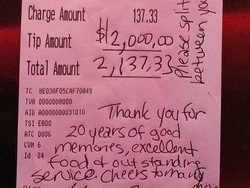 Charge Amount 137.33
Tip Amount $12,000.00
Total Amount 2,137.33
TC 8E03AF05CAF70A49
TVR 0000008000
AID A0000000031010
TSI E800
ATC 0006
CVM 6
Id 24
Please split
between you
Thank you for
20 years of good
memories, excellent
food & outstanding
service. Cheers to many